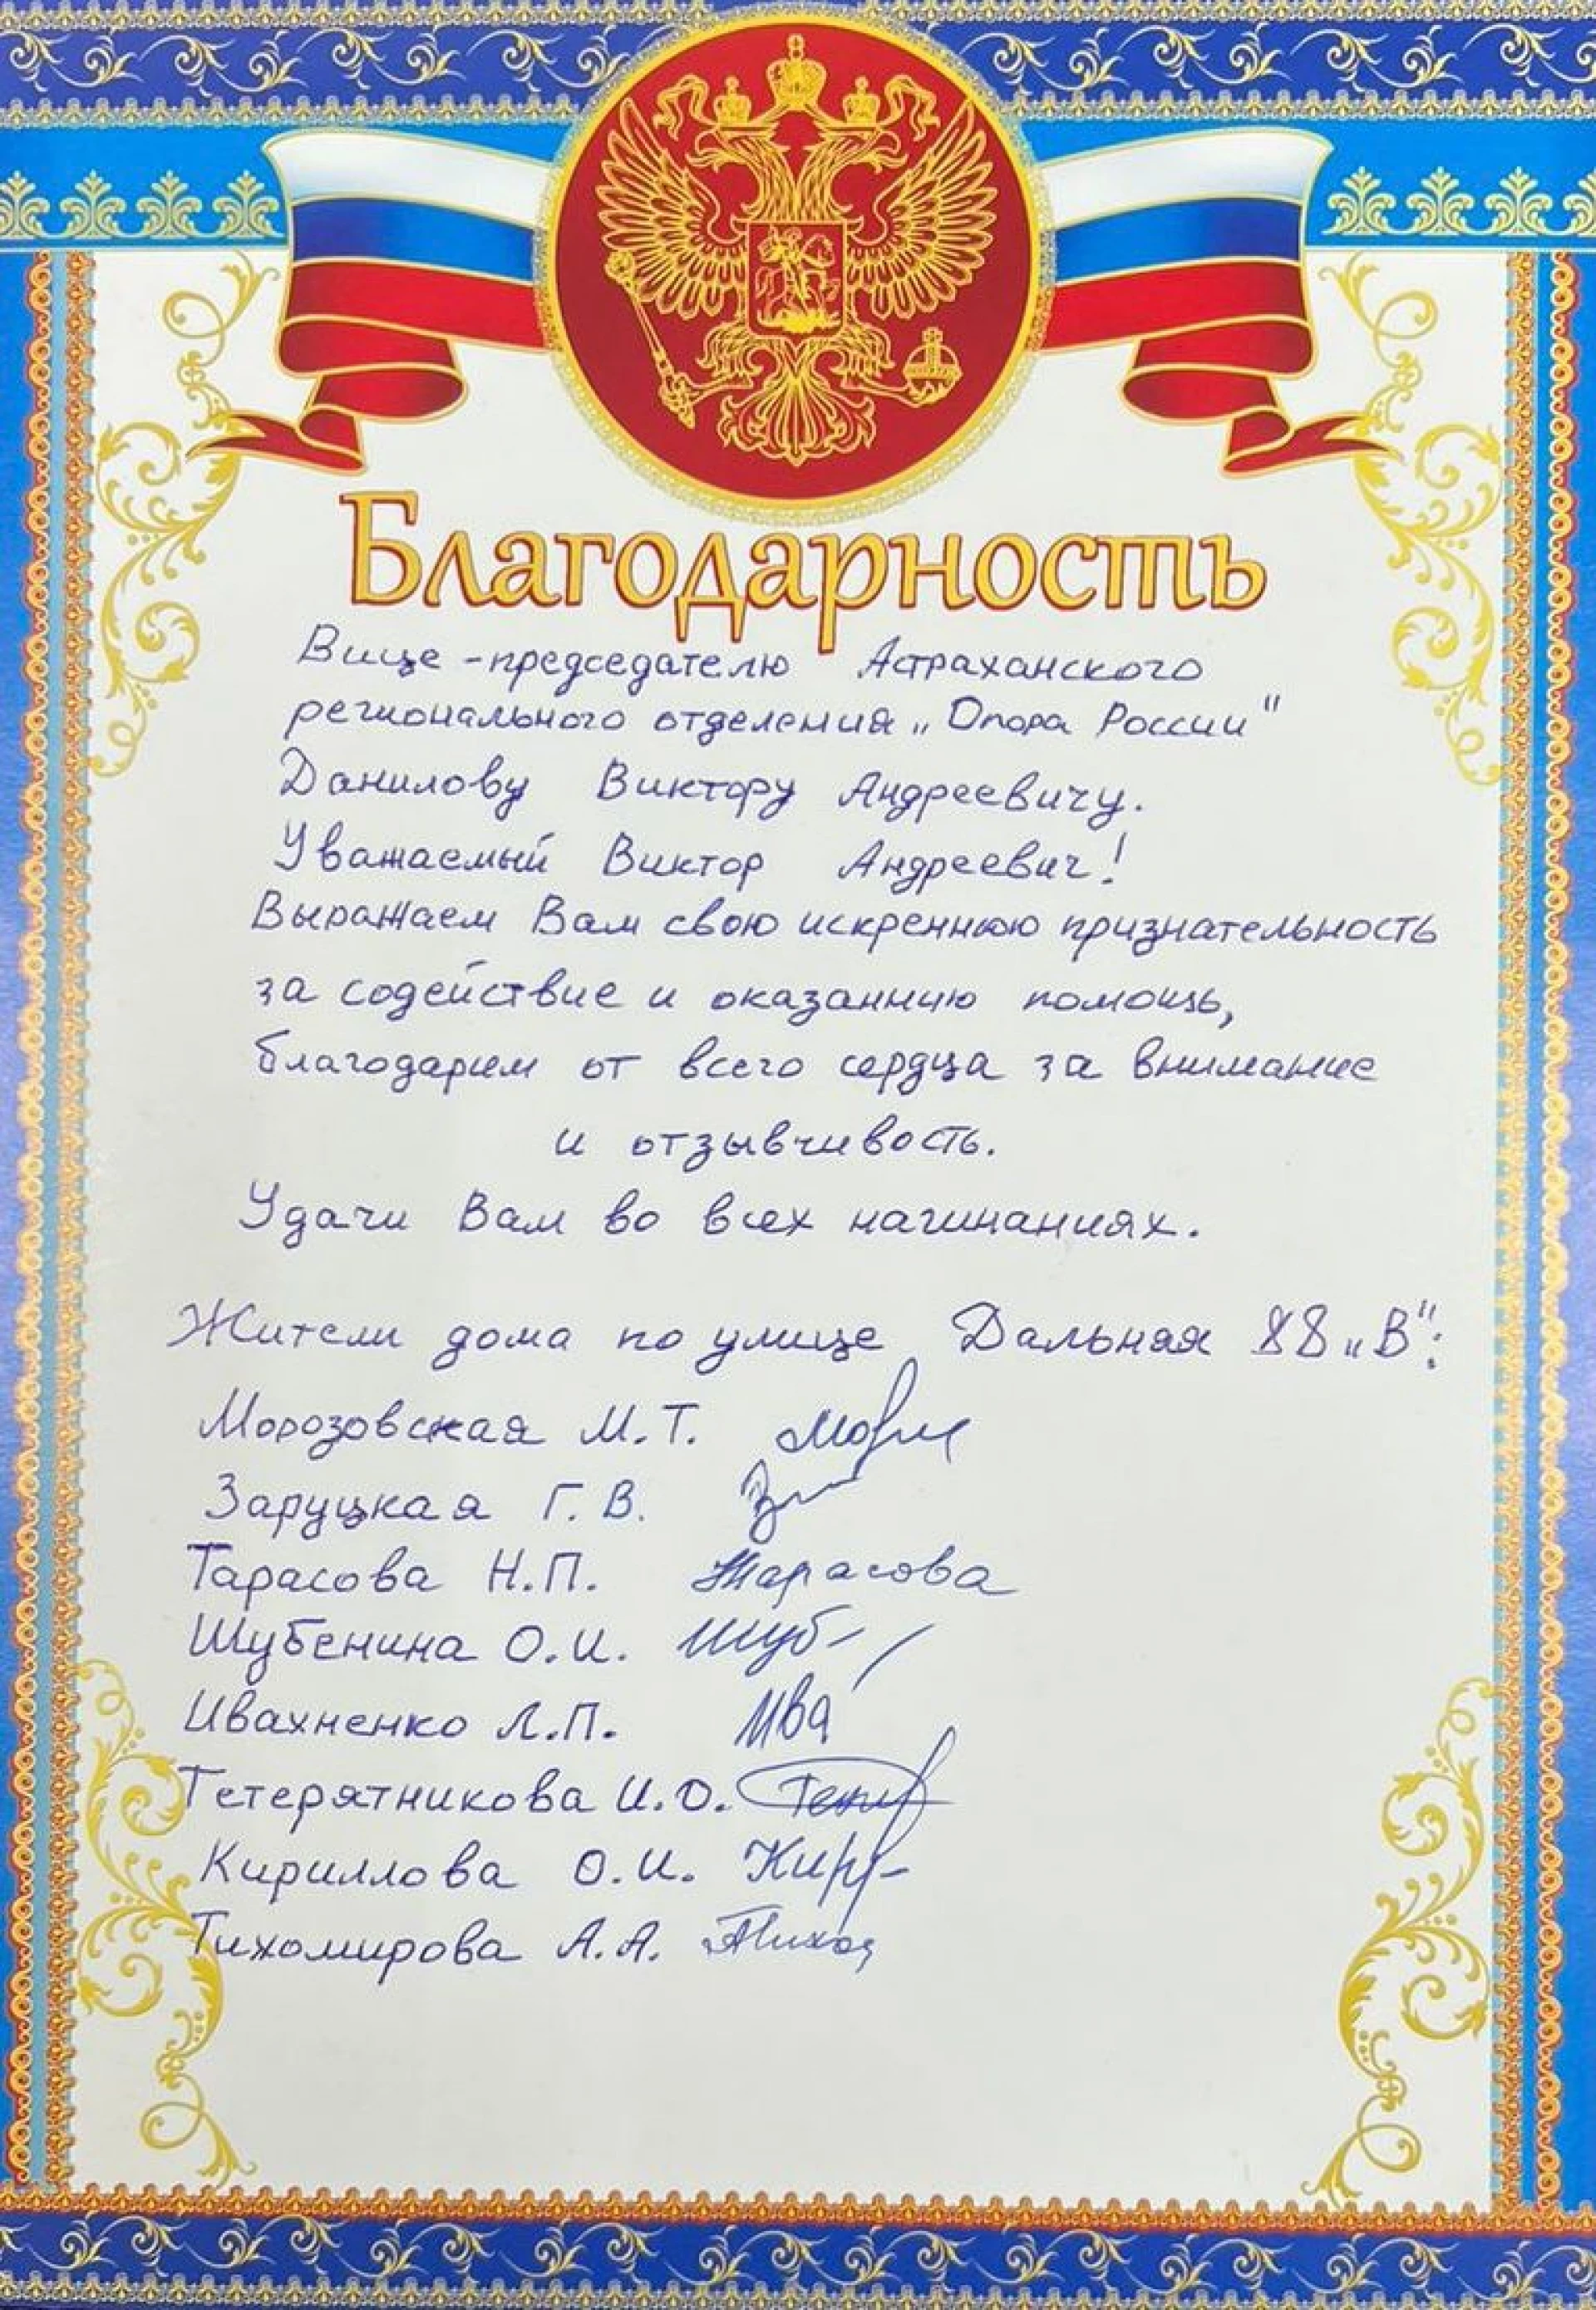 Благодарность
Вице-председателю Астраханского
регионального отделения „Опора России"
Данилову Виктору Андреевичу.
Уважаемый Виктор Андреевич!
Выражаем Вам свою искреннюю признательность
за содействие и оказаннию помощь,
благодарим от всего сердца за внимание
и отзывчивость.
Удачи Вам во всех начинаниях.
Жители дома по улице Дальняя 88 „В":
Морозовская М.Т.
Заруцкая Г.В.
Тарасова Н.П. Тарасова
Шубенина О.И. Шуб
Ивахненко Л.П. Ива
Тетерятникова И.О.
Кириллова О.И. Кир
Тихомирова А.А.